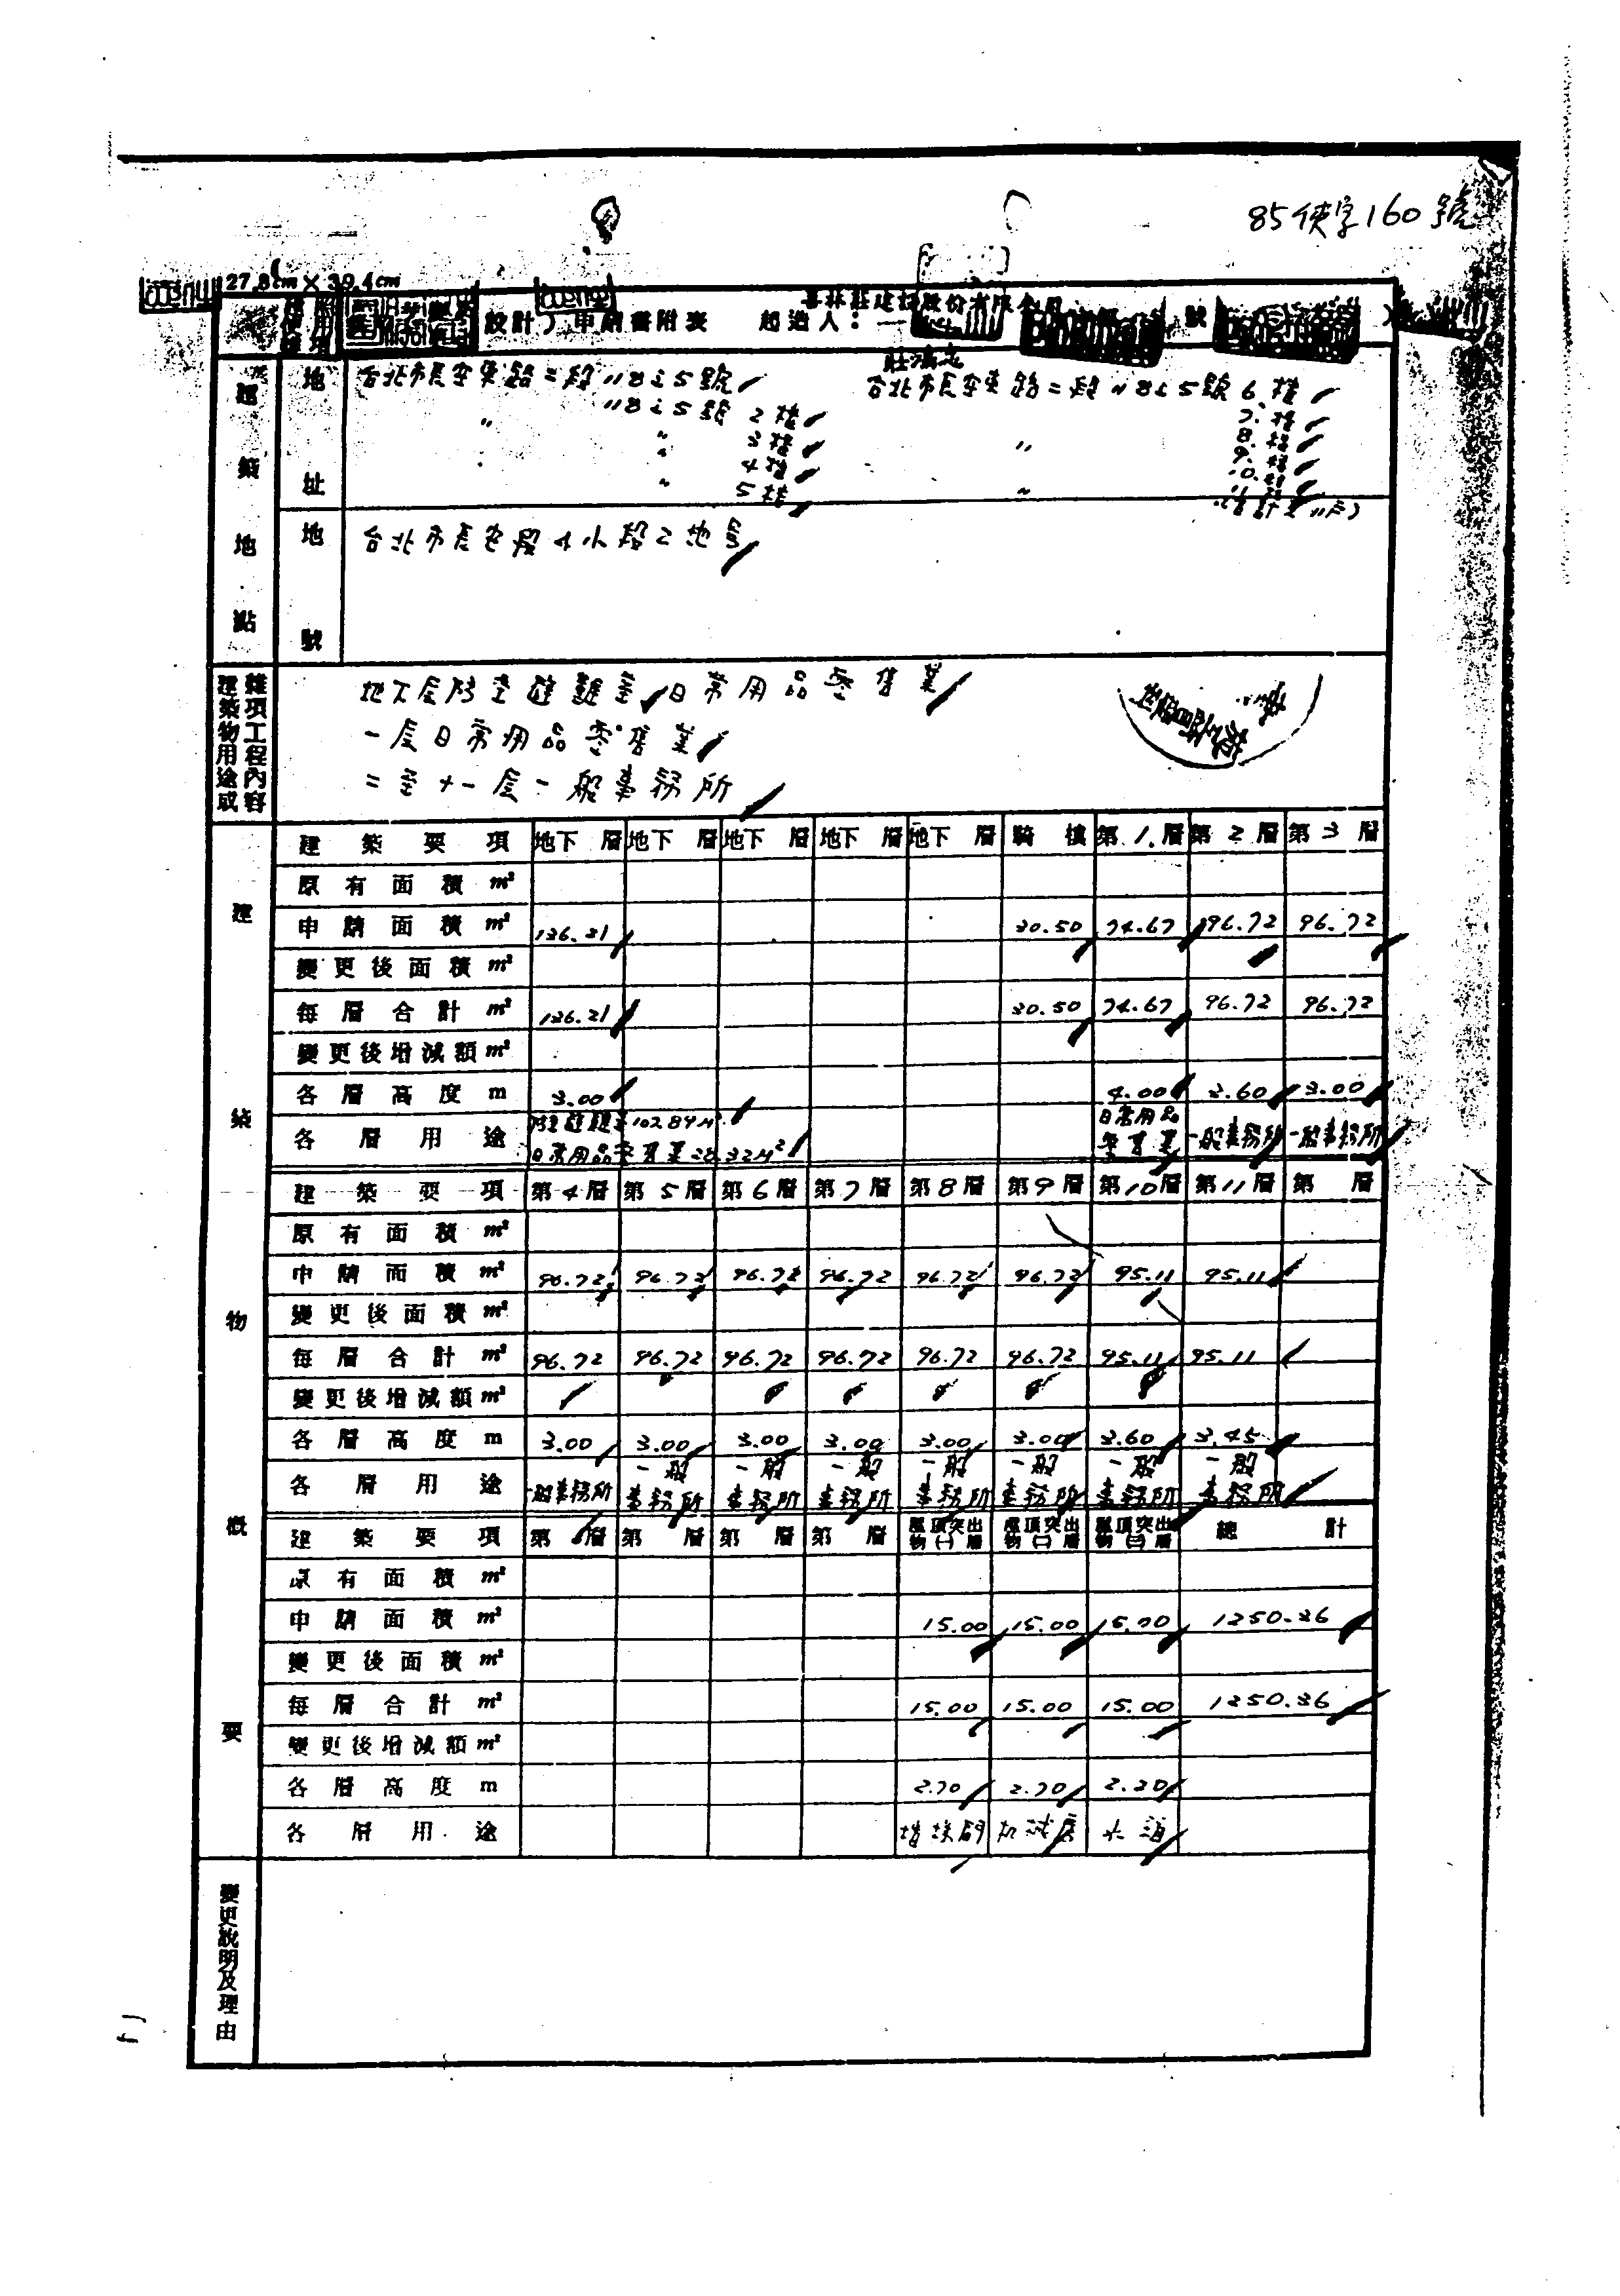 85使字160號
27.8cm×39.4cm
設計)申請書附表 起造人:
建築地點
地址
台北市長安東路二段118之5號 台北市長安東路二段118之5號6樓
〃 118之5號2樓 7樓
〃 3樓 〃 8樓
〃 4樓 9樓
〃 5樓 〃 10樓
地號
台北市長安段4小段2地号
建築物用途或雜項工程內容
地下层防空避難室 日常用品零售業
一层日常用品零售業
二至十一层一般事務所
建築物概要
建築要項 地下 層 地下 層 地下 層 地下 層 地下 層 騎樓 第1層 第2層 第3層
原有面積 m²
申請面積 m² 30.50 74.67 96.72 96.72
變更後面積 m²
每層合計 m² 30.50 74.67 96.72 96.72
變更後增減額 m²
各層高度 m 3.00 4.00 3.60 3.00
各層用途 日常用品零售業 一般事務所 一般事務所
建築要項 第4層 第5層 第6層 第7層 第8層 第9層 第10層 第11層 第 層
原有面積 m²
申請面積 m² 96.72 96.72 96.72 96.72 96.72 96.72 95.11 95.11
變更後面積 m²
每層合計 m² 96.72 96.72 96.72 96.72 96.72 96.72 95.11 95.11
變更後增減額 m²
各層高度 m 3.00 3.00 3.00 3.00 3.00 3.00 3.60 3.45
各層用途 一般事務所 一般事務所 一般事務所 一般事務所 一般事務所 一般事務所 一般事務所 一般事務所
建築要項 第 層 第 層 第 層 第 層 屋頂突出物(一)層 屋頂突出物(二)層 屋頂突出物(三)層 總計
原有面積 m²
申請面積 m² 15.00 15.00 15.00 1250.36
變更後面積 m²
每層合計 m² 15.00 15.00 15.00 1250.36
變更後增減額 m²
各層高度 m 2.70 2.70 2.20
各層用途 机械房 水箱
變更說明及理由